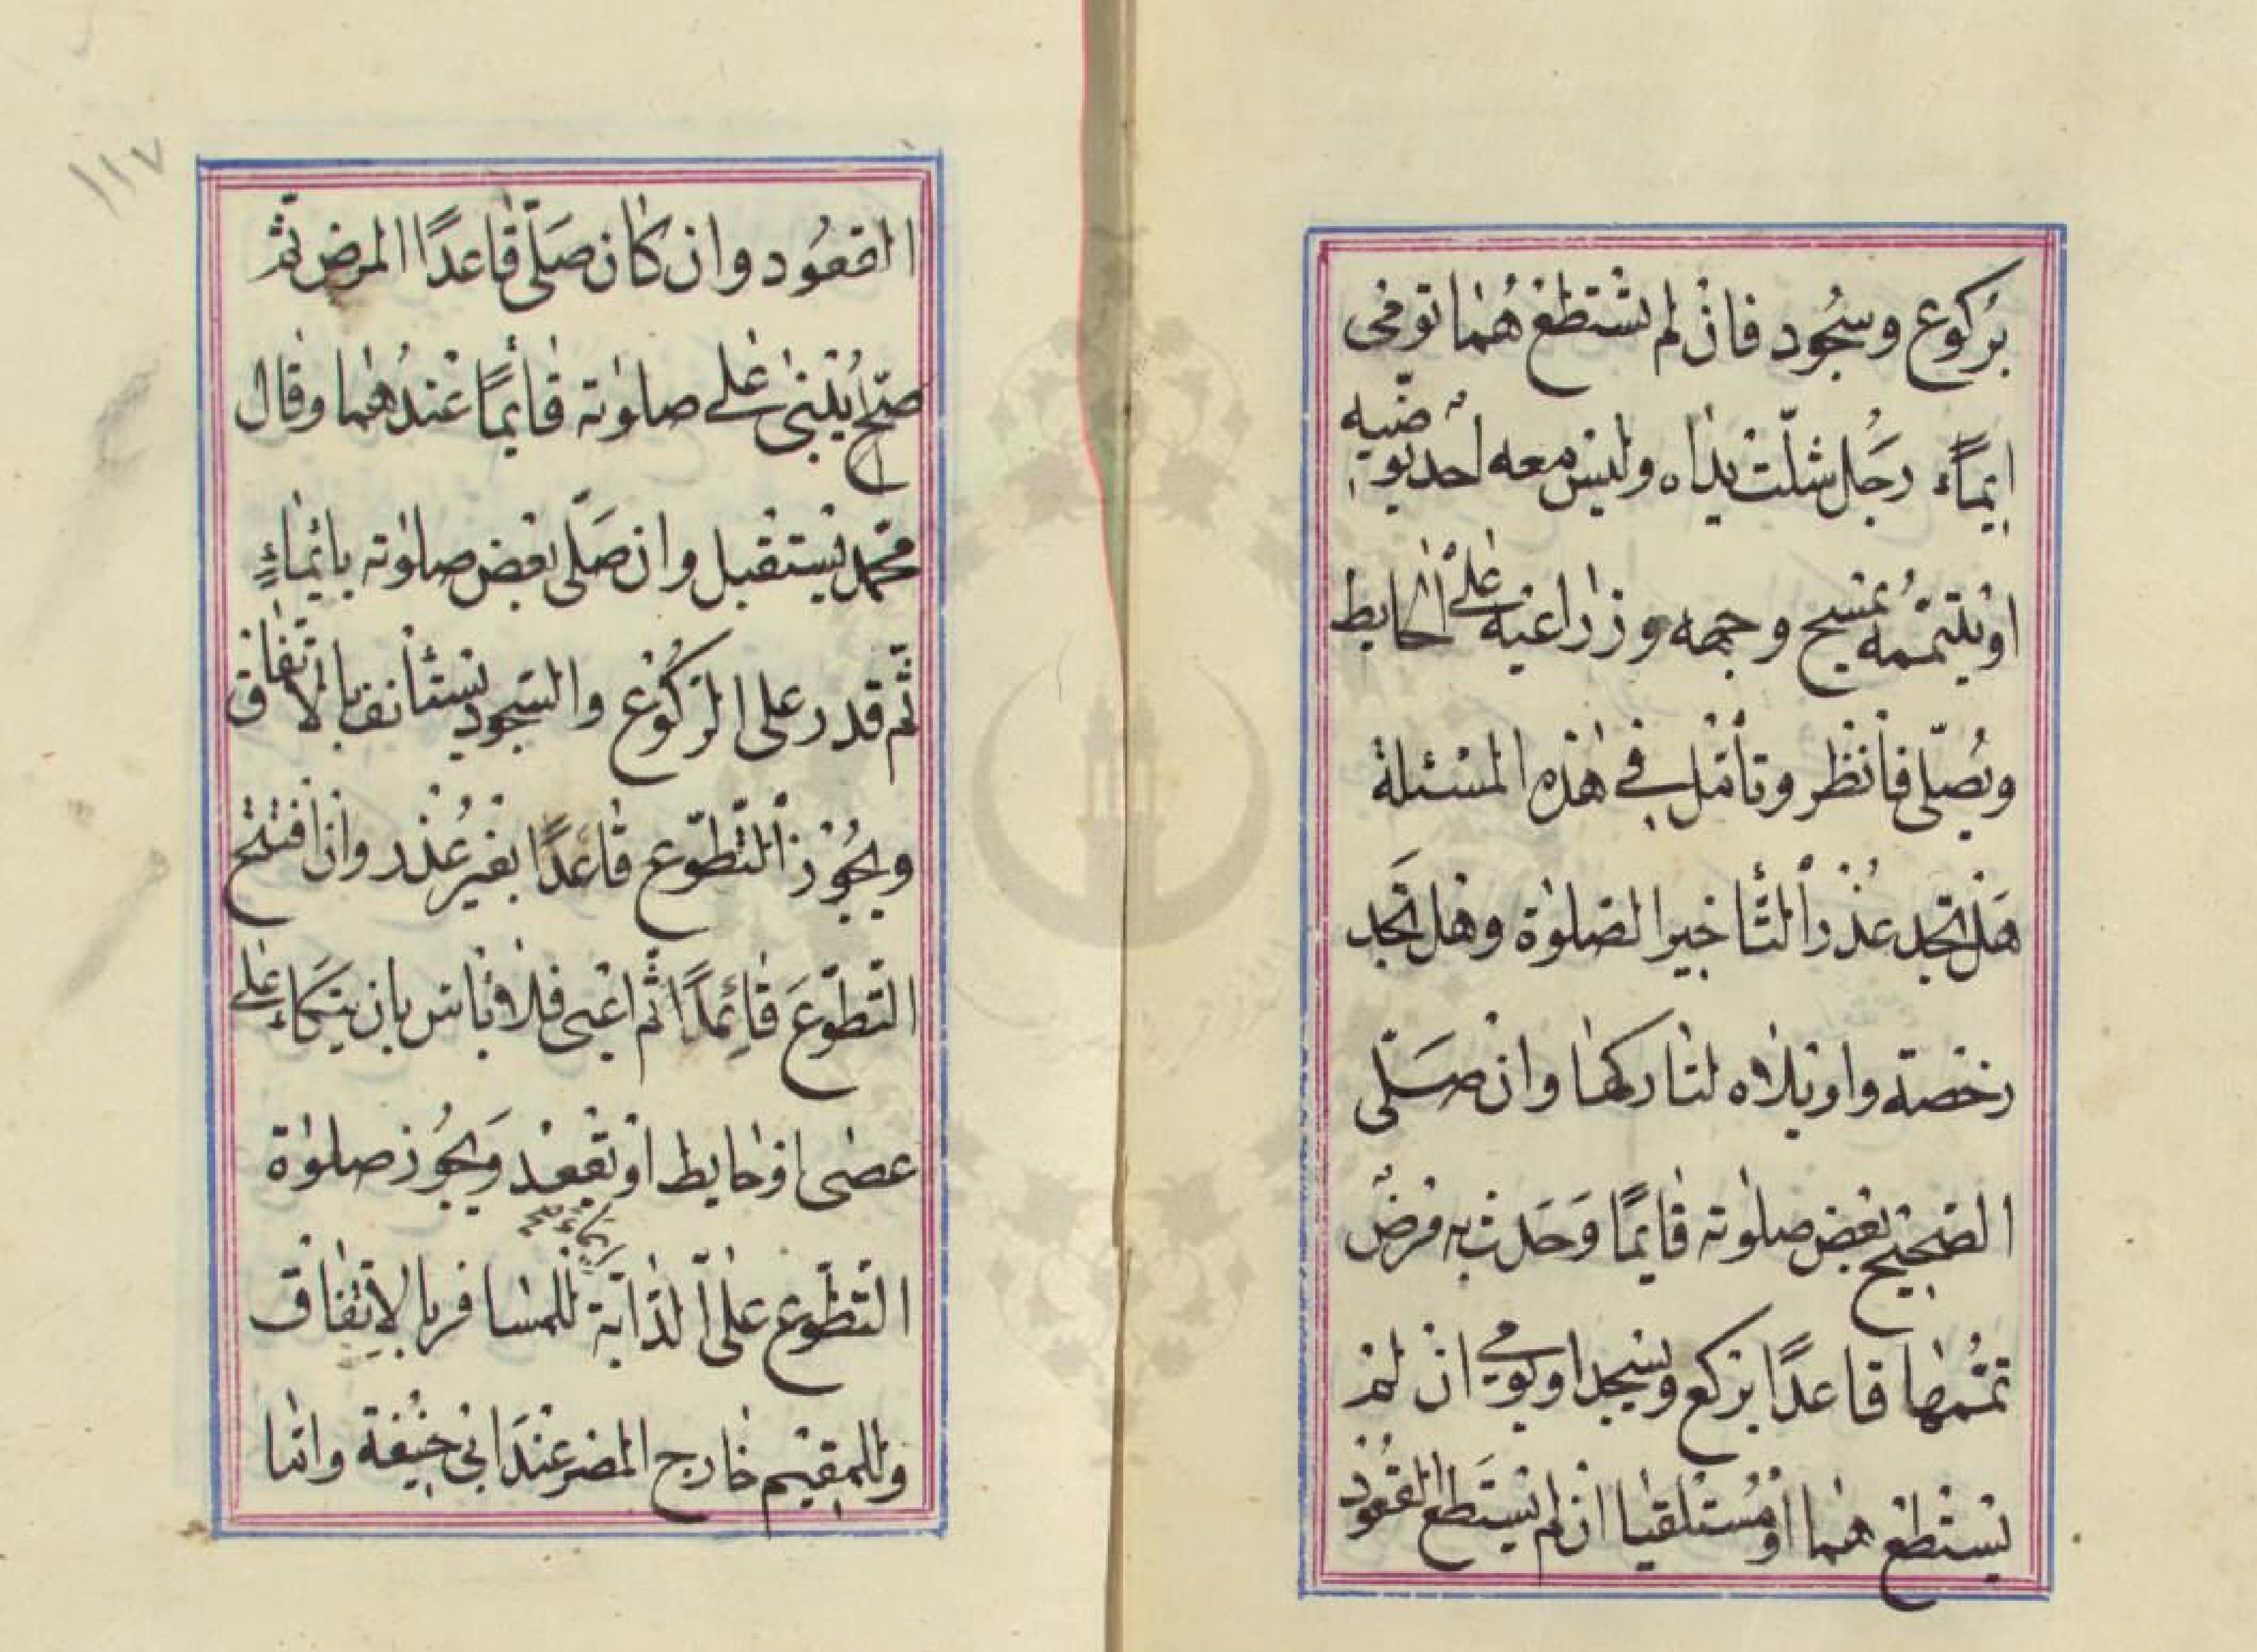 بركوع وسجود فان لم تستطع هما تومى
ايماء رجل شلت يداه وليس معه احد يوضيه
او يتيممه يمسح وجهه وذراعيه على الحايط
ويصلى فانظر وتأمل فى هذه المسئلة
هل تجد عذرا لتأخير الصلوة وهل تجد
رخصة واويلاه لتاركها وان صلى
الصحيح بعض صلوته قايما وحدث به مرض
تممها قاعدا يركع ويسجد او يومى ان لم
يستطع هما او مستلقيا ان لم يستطع القعود
القعود وان كان صلى قاعدا المرض ثم
صح يبنى على صلوته قايما عندهما وقال
محمد يستقبل وان صلى بعض صلوته بايماء
ثم قدر على الركوع والسجود يستأنف بالاتفاق
ويجوز التطوع قاعدا بغير عذر وان افتتح
التطوع قائما ثم اعيى فلا بأس بان يتكاء على
عصى او حايط او يقعد ويجوز صلوة
التطوع على الدابة للمسافر بالاتفاق
وللمقيم خارج المصر عند ابى حنيفة واما
١١٧